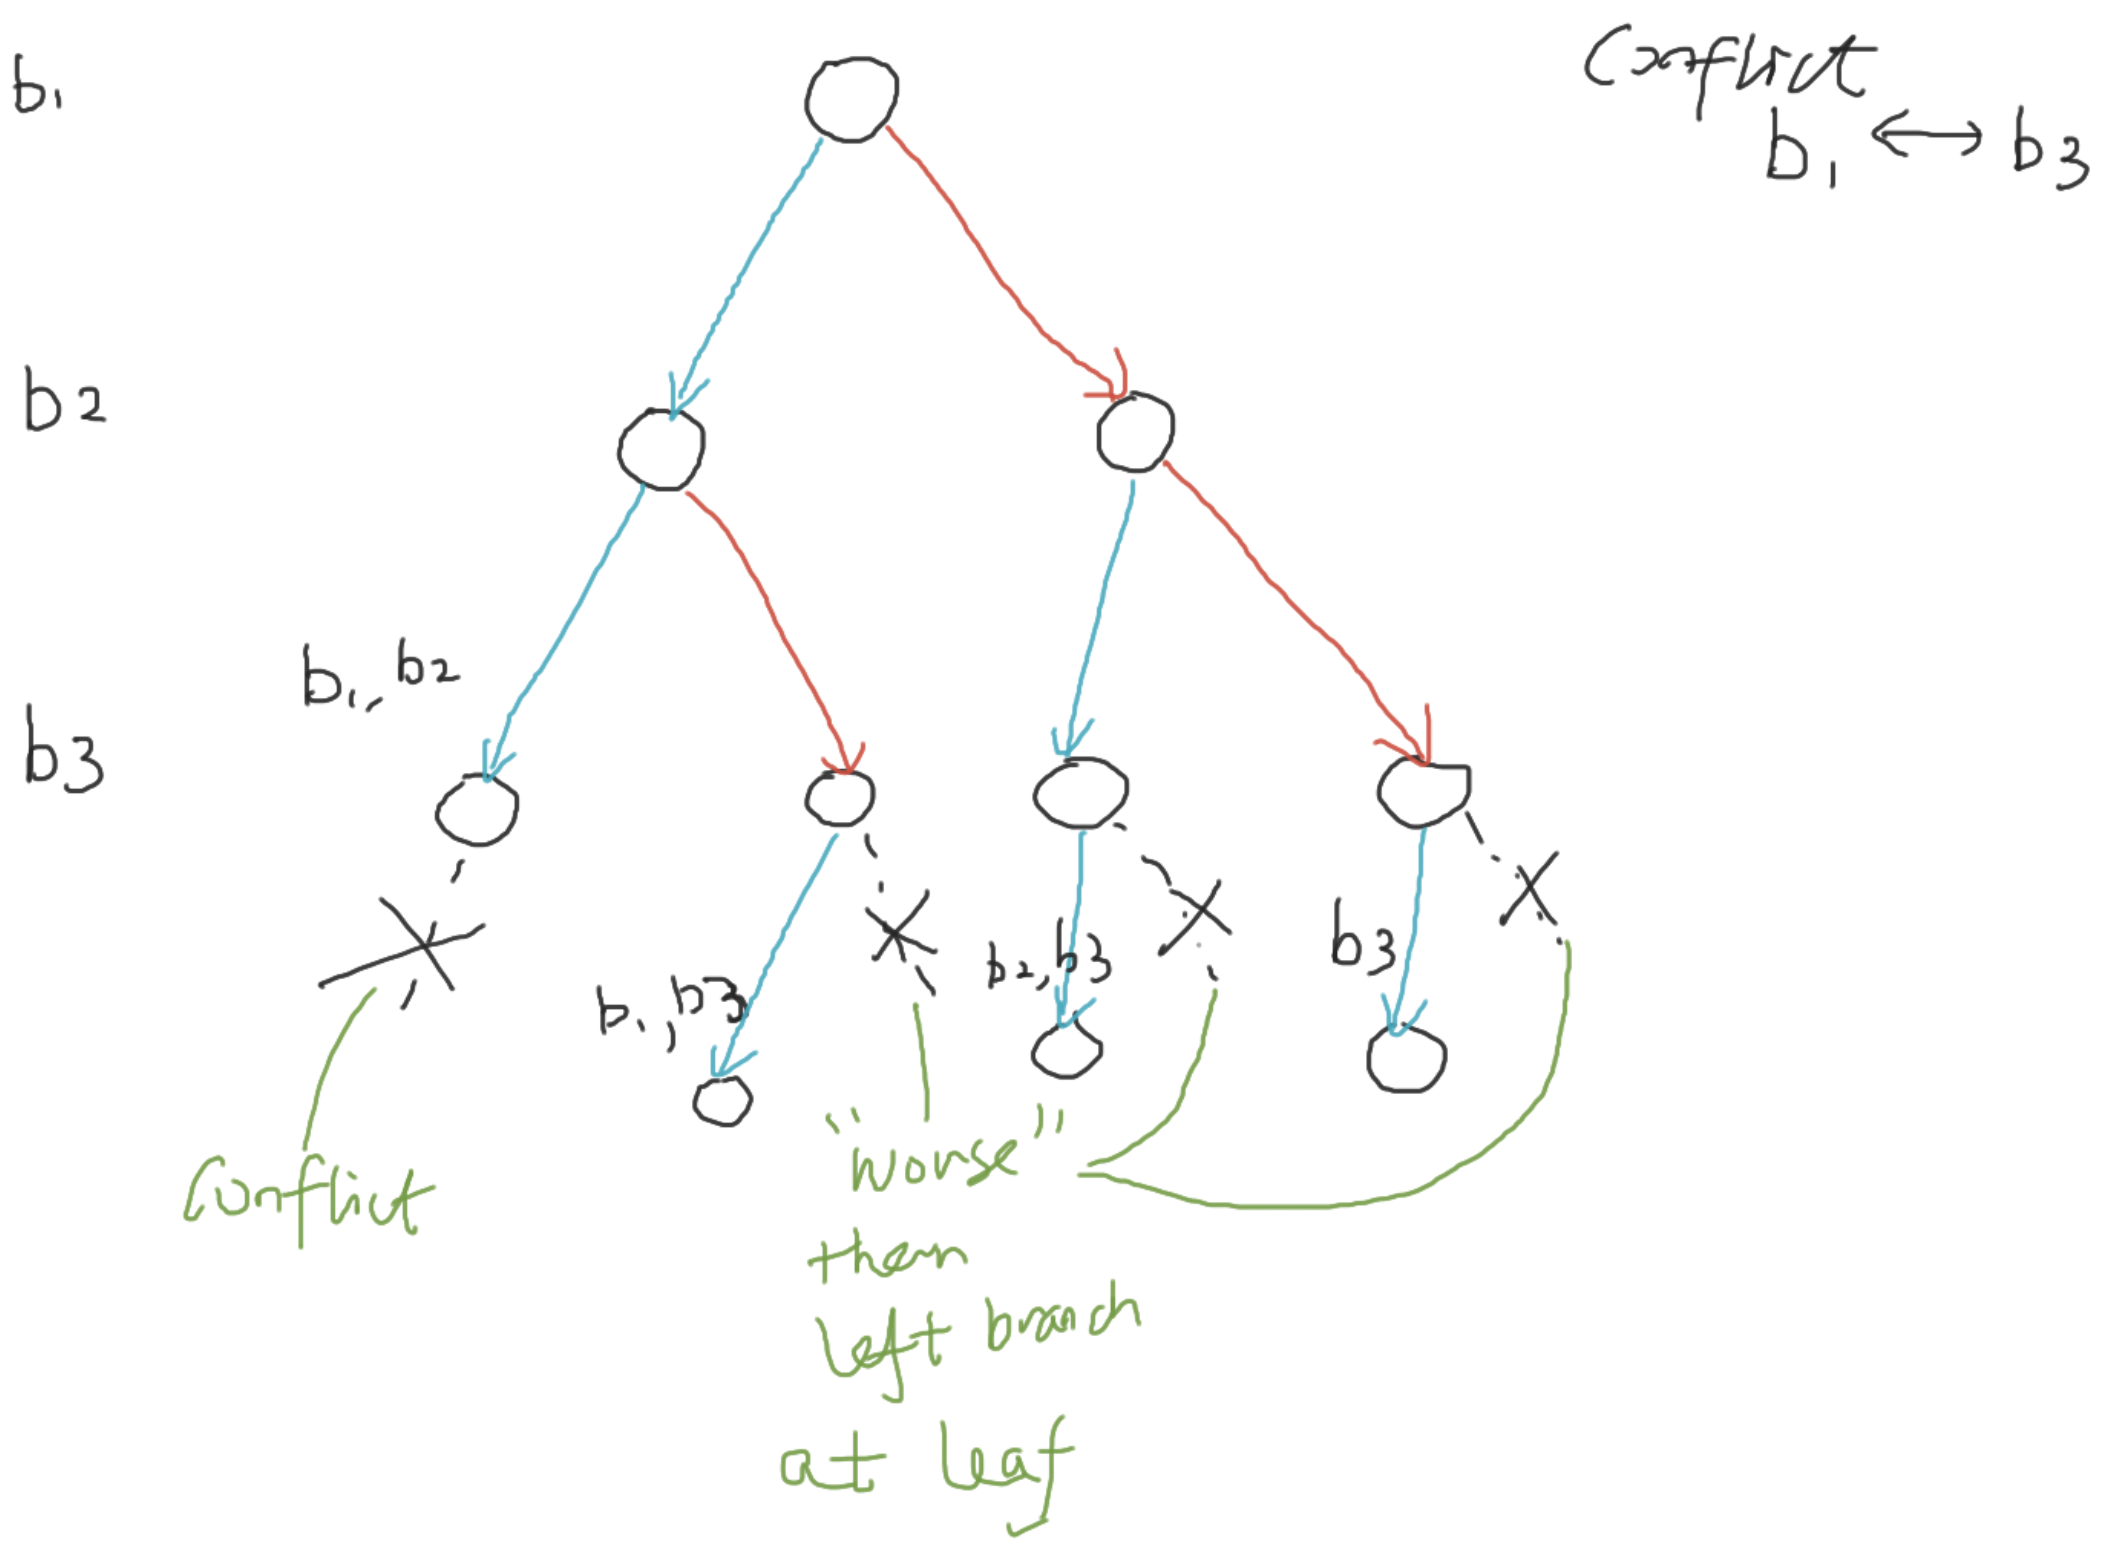 b1
Conflict
b1 ↔ b3
b2
b1, b2
b3
b1, b3
b2, b3
b3
Conflict
"worse"
then
left branch
at leaf